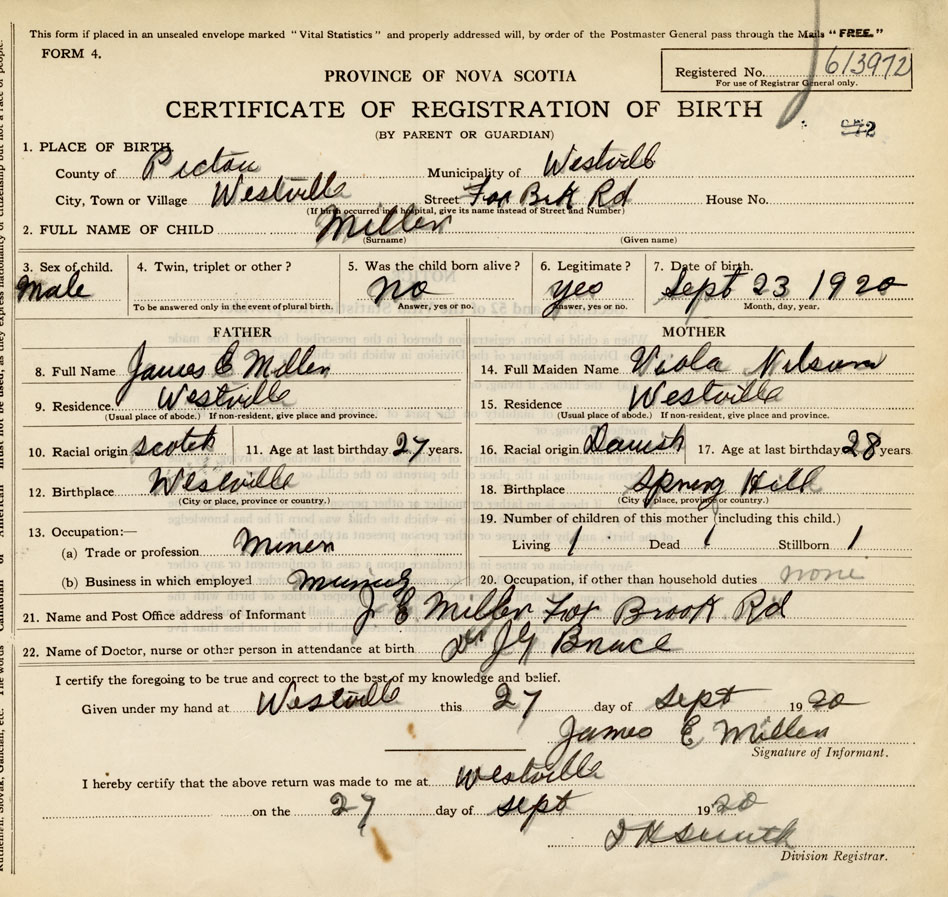 This form if placed in an unsealed envelope marked "Vital Statistics" and properly addressed will, by order of the Postmaster General pass through the Mails "FREE."
FORM 4.
Registered No. 613972
For use of Registrar General only.
PROVINCE OF NOVA SCOTIA
CERTIFICATE OF REGISTRATION OF BIRTH
(BY PARENT OR GUARDIAN)
1. PLACE OF BIRTH.
County of Pictou Municipality of Westville
City, Town or Village Westville Street Fox Brk Rd House No.
(If birth occurred in a hospital, give its name instead of Street and Number)
2. FULL NAME OF CHILD Miller
(Surname) (Given name)
3. Sex of child. 4. Twin, triplet or other? 5. Was the child born alive? 6. Legitimate? 7. Date of birth.
Male no yes Sept 23 1920
To be answered only in the event of plural birth. Answer, yes or no. Answer, yes or no. Month, day, year.
FATHER MOTHER
8. Full Name James E Miller 14. Full Maiden Name Viola Nilson
9. Residence. Westville 15. Residence. Westville
(Usual place of abode.) If non-resident, give place and province. (Usual place of abode.) If non-resident, give place and province.
10. Racial origin scotch 11. Age at last birthday 27 years. 16. Racial origin Danish 17. Age at last birthday 28 years
12. Birthplace Westville 18. Birthplace Spring Hill
(City or place, province or country.) (City or place, province or country.)
13. Occupation:— 19. Number of children of this mother (including this child.)
(a) Trade or profession Miner Living 1 Dead 1 Stillborn 1
(b) Business in which employed mining 20. Occupation, if other than household duties none
21. Name and Post Office address of Informant J E Miller Fox Brook Rd
22. Name of Doctor, nurse or other person in attendance at birth Dr J G Bruce
I certify the foregoing to be true and correct to the best of my knowledge and belief.
Given under my hand at Westville this 27 day of Sept 1920
James E Miller
Signature of Informant.
I hereby certify that the above return was made to me at Westville
on the 27 day of sept 1920
Smith
Division Registrar.